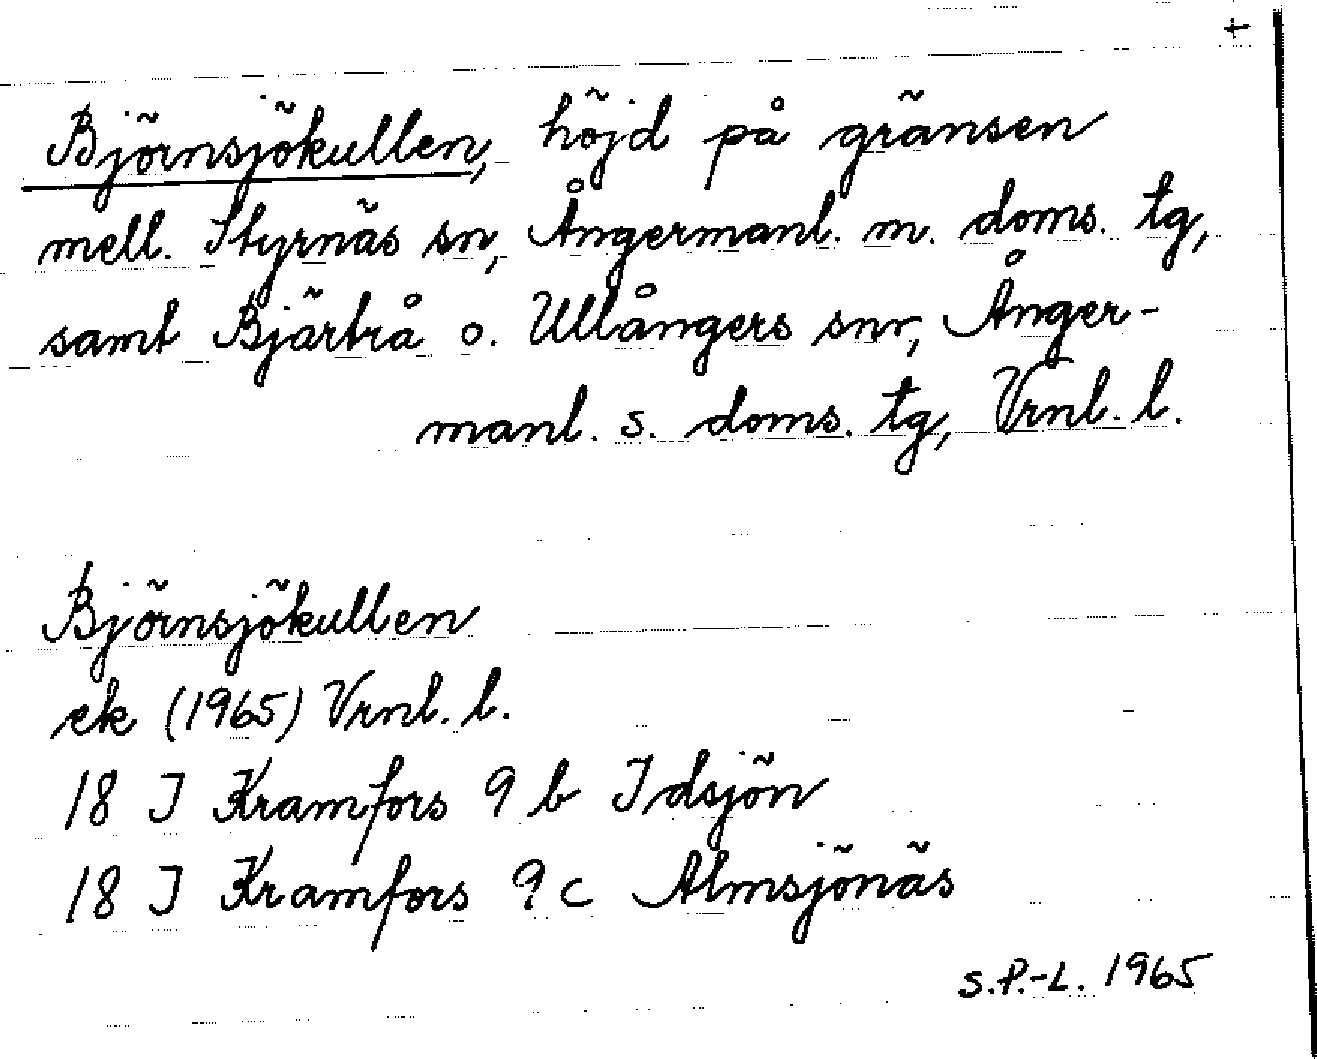 +
Björnsjökullen, höjd på gränsen
mell. Styrnäs sn, Ångermanl. m. doms. tg,
samt Bjärtrå o. Ullångers snr, Ånger-
manl. s. doms. tg, Vrnl. l.
Björnsjökullen
ek (1965) Vrnl. l.
18 I Kramfors 9 b Idsjön
18 I Kramfors 9 c Almsjönäs
S.P.-L. 1965